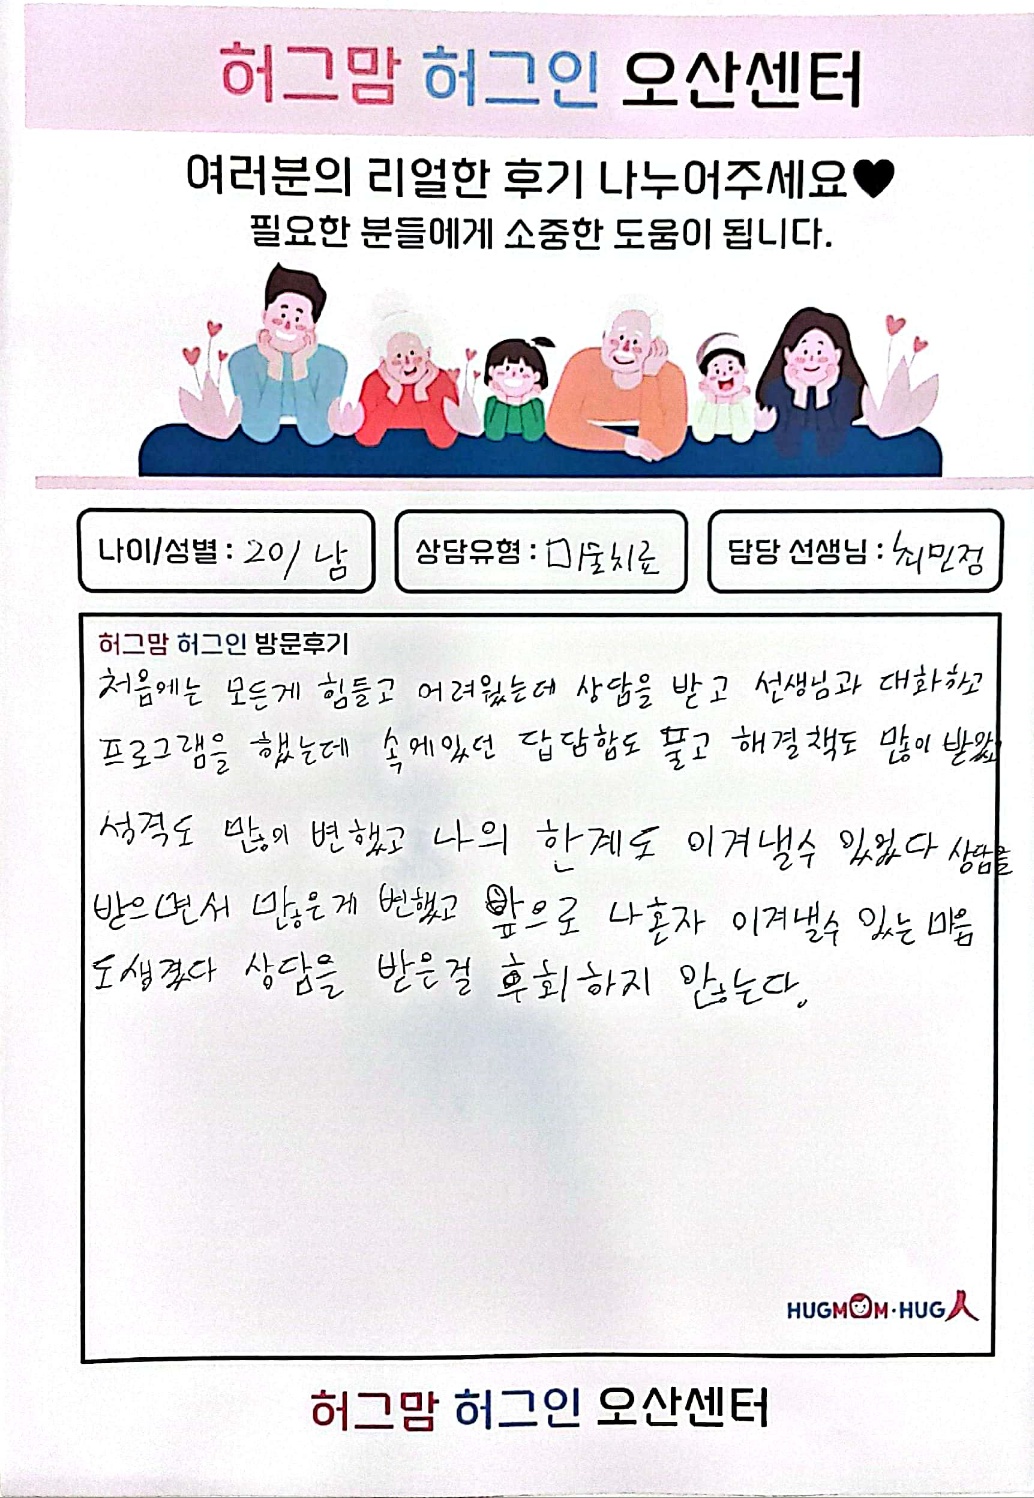 허그맘 허그인 오산센터
여러분의 리얼한 후기 나누어주세요♥
필요한 분들에게 소중한 도움이 됩니다.
나이/성별 : 20/ 남
상담유형 : 미술치료
담당 선생님 : 최민정
허그맘 허그인 방문후기
처음에는 모든게 힘들고 어려웠는데 상담을 받고 선생님과 대화하고
프로그램을 했는데 속에있던 답답함도 풀고 해결책도 많이 받았고
성격도 많이 변했고 나의 한계도 이겨낼수 있었다 상담을
받으면서 많은게 변했고 앞으로 나혼자 이겨낼수 있는 마음
도생겼다 상담을 받은걸 후회하지 않는다.
HUGMOM·HUG人
허그맘 허그인 오산센터